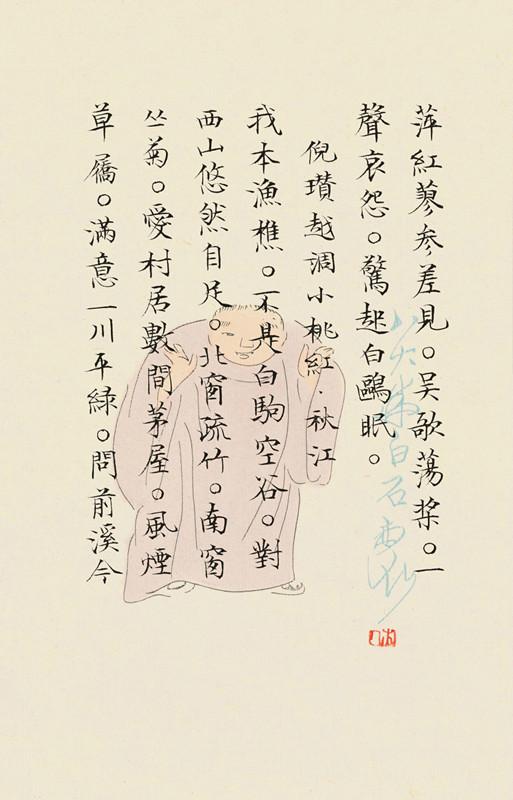 萍紅蓼参差見。吴歌蕩桨。一
聲哀怨。驚起白鷗眠。
倪瓚越調小桃紅·秋江
我本漁樵。不是白駒空谷。對
西山悠然自足。北窗疏竹。南窗
丛菊。愛村居數間茅屋。風煙
草屩。滿意一川平緑。問前溪今